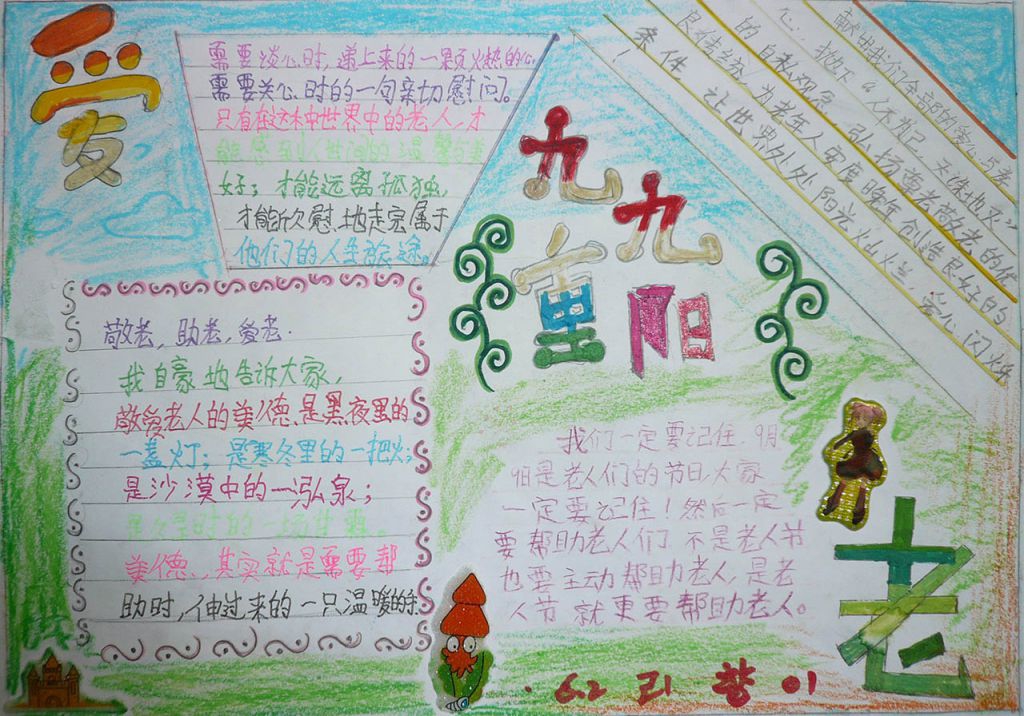 爱
需要谈心时,递上来的一颗火热的心
需要关心时的一句亲切慰问。
只有在这种中世界中的老人,才
能感到人世间的温馨与美
好;才能远离孤独,
才能欣慰地走完属于
他们的人生旅途。
敬老,助老,爱老.
我自豪地告诉大家,
敬爱老人的美德,是黑夜里的
一盏灯;是寒冬里的一把火;
是沙漠中的一泓泉;
是久旱时的一场甘
美德,其实就是需要帮
助时,伸过来的一只温暖的手
九九
重阳
献出我们全部的爱心与孝
心.抛下“人不为己,天诛地灭”
的自私观念,弘扬尊老敬老的优
良传统,为老年人安度晚年创造良好的
条件,让世界处处阳光灿烂,爱心闪烁
我们一定要记住.9月
9日是老人们的节日,大家
一定要记住!然后一定
要帮助老人们 不是老人节
也要主动帮助老人,是老
人节就更要帮助老人。
老
6.2
01